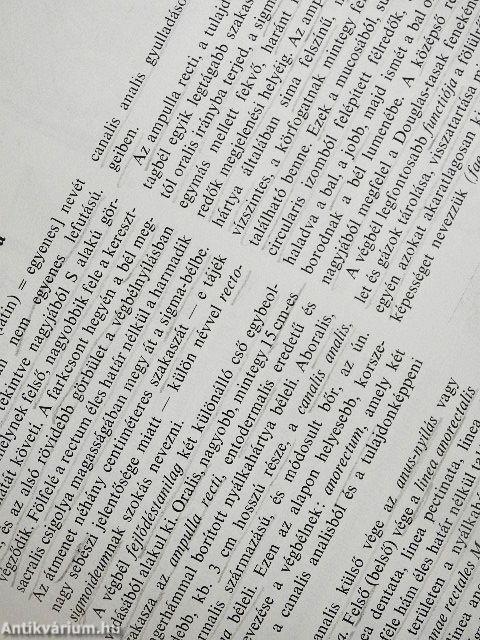 (latin) = egyenes] nevét
nem egyenes lefutású.
tekintve nagyjából S alakú gör-
melynek felső, nagyobbik fele a kereszt-
latát követi. A farkcsont hegyén a bél meg-
és az alsó rövidebb görbület a végbélnyílásban
végződik. Fölfelé a rectum éles határ nélkül a harmadik
sacralis csigolya magasságában megy át a sigma-bélbe.
Az átmenet néhány centiméteres szakaszát — e tájék
nagy sebészi jelentősége miatt — külön névvel recto-
sigmoideumnak szokás nevezni.
A végbél fejlődéstanilag két különálló cső egybeol-
vadásából alakul ki. Oralis, nagyobb, mintegy 15 cm-es
szakasza az ampulla recti, entodermalis eredetű és
hengerhámmal borított nyálkahártya béleli. Aboralis,
kisebb, kb. 3 cm hosszú része, a canalis analis,
származású, és módosult bőr, az ún.
béleli. Ezen az alapon helyesebb, korsze-
elnevezése a végbélnek: anorectum, amely két
a canalis analisból és a tulajdonképpeni
canalis analis gyulladásos
geiben.
Az ampulla recti, a tulajd
tagbél egyik legtágabb szakas
tól oralis irányba terjed, a sigm
egymás mellett fekvő, haránt
redők megjelenési helyéig. Az amp
hártya általában sima felszínű, n
vízszintes, a körfogatnak mintegy fe
található benne. Ezek a mucosából, su
circularis izomból felépített félredők.
haladva a bal, a jobb, majd ismét a bal o
borodnak a bél lumenébe. A középső
nagyjából megfelel a Douglas-tasak fenekéne
A végbél legfontosabb functiója a fölül
let és gázok tárolása, visszatartása m
egyén azokat akaratlagosan k
képességet nevezzük (fae
analis külső vége az anus-nyílás vagy
Felső (belső) vége a linea anorectalis
dentata, linea pectinata, linea
féle hám éles határ nélkül ta
területen a nyálkah
rectales M
Antikvárium.hu